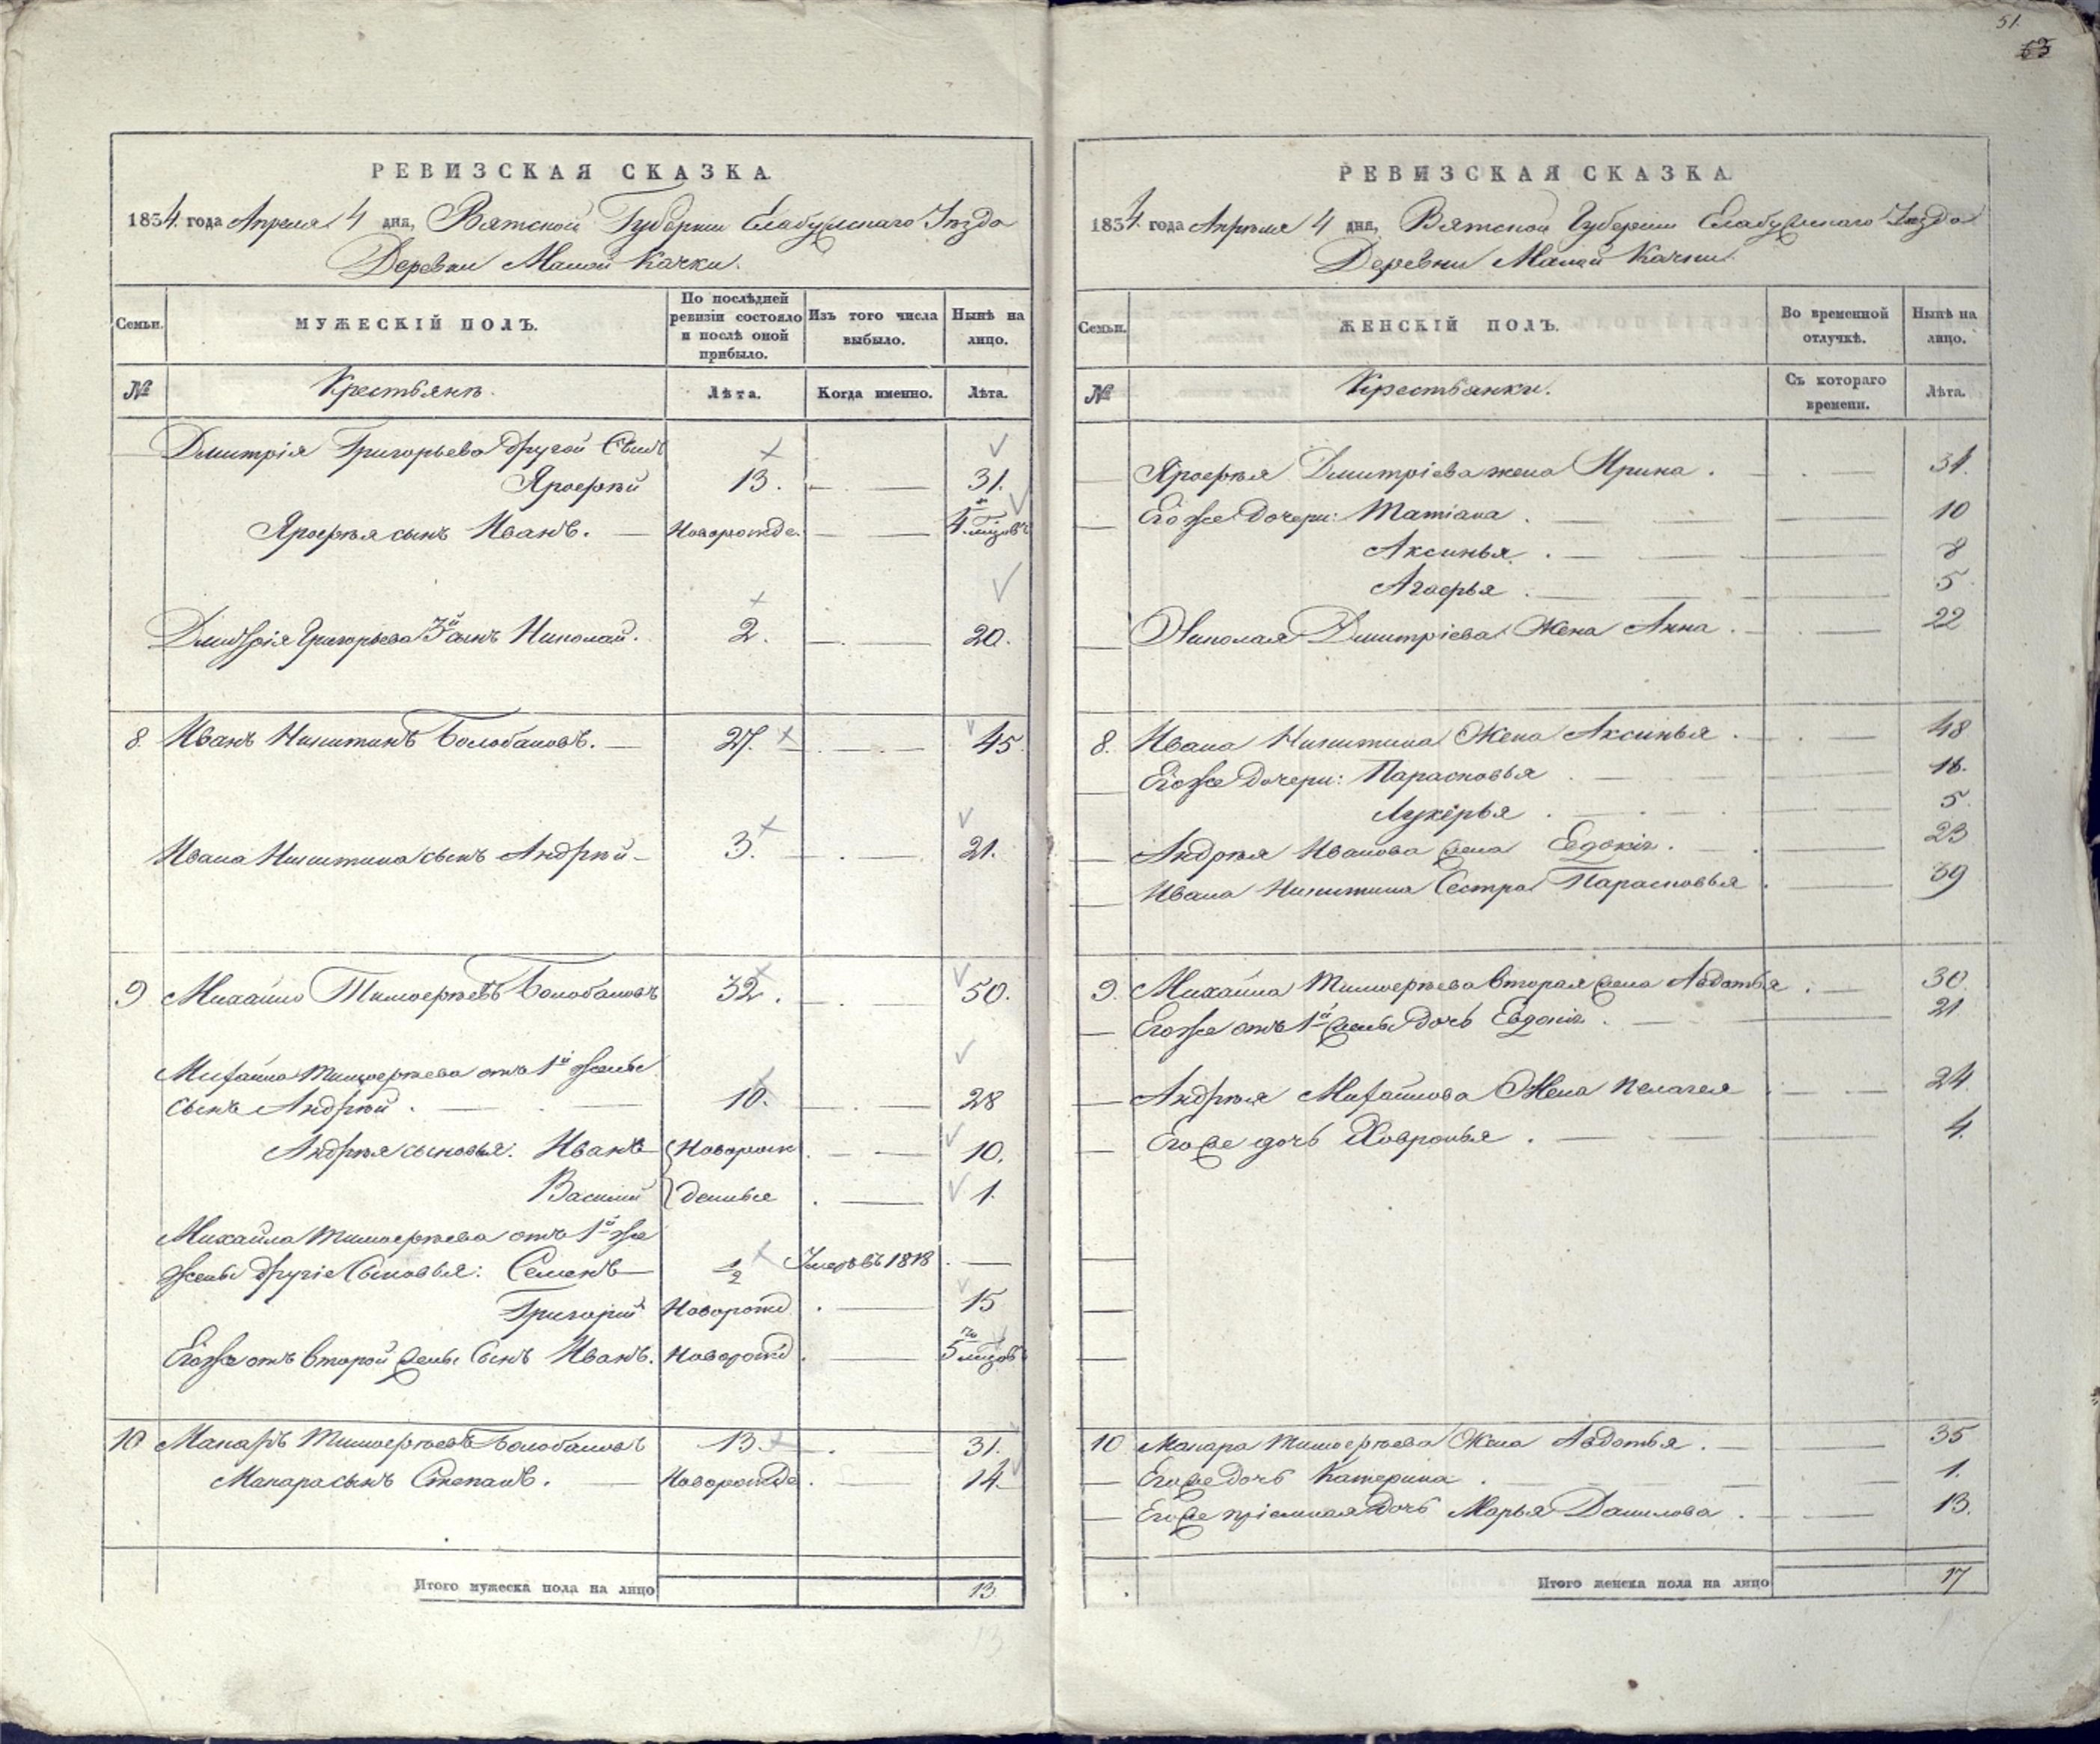 РЕВИЗСКАЯ СКАЗКА.
1834. года Апреля 4 дня, Вятской Губернии Елабужскаго Уѣзда
Деревни Малой Качки.
Семьи.
МУЖЕСКІЙ ПОЛЪ.
По послѣдней ревизіи состояло и послѣ оной прибыло.
Изъ того числа выбыло.
Нынѣ на лицо.
№
Крестьянъ.
Лѣта.
Когда именно.
Лѣта.
Дмитрія Григорьева другой Сынъ
Ярофѣй 13. 31.
Ярофѣя сынъ Иванъ. Новорожде. 4. мцовъ
Дмитрія Григорьева 3й сынъ Николай. 2. 20.
8. Иванъ Никитинъ Болобановъ. 27. 45.
Ивана Никитина сынъ Андрѣй 3. 21.
9 Михайло Тимоѳѣевъ Болобановъ 32. 50.
Михайла Тимоѳѣева отъ 1й жены
сынъ Андрѣй. 10. 28
Андрѣя сыновья: Иванъ Новорож 10.
Василий денные 1.
Михайла Тимоѳѣева отъ 1й же
жены другіе Сыновья: Семенъ 1/2 Умеръ въ 1818
Григорий Новорожд 15
Егоже отъ второй жены Сынъ Иванъ. Новорожд. 5 мцовъ
10 Макаръ Тимоѳѣевъ Болобановъ 13. 31.
Макара сынъ Степанъ. Новорожде. 14.
Итого мужеска пола на лицо 13
13
51.
63
РЕВИЗСКАЯ СКАЗКА.
1834. года Апрѣля 4 дня, Вятской Губерніи Елабужскаго Уѣзда
Деревни Малой Качки.
Семьи.
ЖЕНСКІЙ ПОЛЪ.
Во временной отлучкѣ.
Нынѣ на лицо.
№
Крестьянки.
Съ котораго времени.
Лѣта.
Ярофѣя Дмитріева жена Ирина. 31.
Егоже дочери: Матіана. 10
Аксинья. 8
Агафья. 5.
Николая Дмитріева Жена Анна. 22
8. Ивана Никитина Жена Аксинья. 48
Егоже дочери: Парасковья. 16.
Лукерья. 5.
Андрѣя Иванова жена Евдокія. 23
Ивана Никитина Сестра Парасковья. 39
9. Михайла Тимоѳѣева вторая жена Авдотья. 30.
Егоже отъ 1й жены дочь Евдокія. 21
Андрѣя Михайлова Жена Пелагея 24.
Егоже дочь Ховронья. 4.
10. Макара Тимоѳѣева Жена Авдотья. 35
Егоже дочь Катерина. 1.
Егоже пріемная дочь Марья Данилова. 13.
Итого женска пола на лицо 17